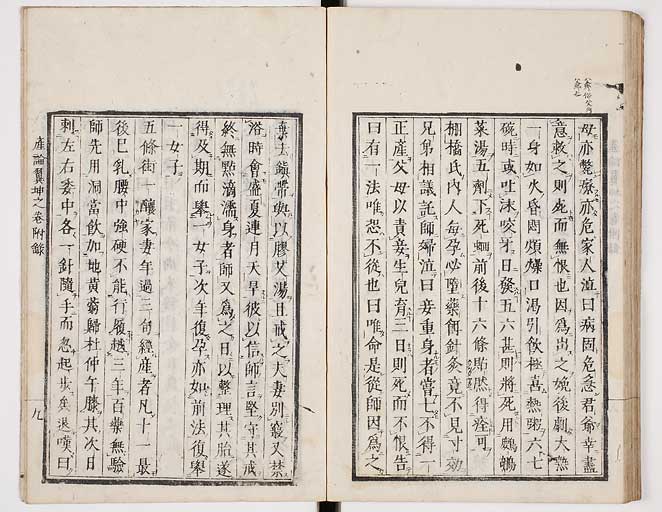 母亦斃療亦危家人泣曰病固危急君爺幸盡
意救之則死而無恨也因爲出之娩後劇大熱
一身如火昏悶煩燥口渴引飲極喜熱粥六七
碗時或吐沫咬牙日發五六甚則將死用鷓鴣
菜湯五劑下死蛔前後十六條貼然得痊可
棚橋氏內人每孕必墮藥餌針灸竟不見寸効
兄弟相議託師婦泣曰妾重身者當七不得一
正產父母以責妾生兒育三日則死而不恨告
曰有一法唯恐不從也曰唯命是從師因爲之
鎭帶與以膠艾湯且戒之夫妻別寢又禁
浴時會盛夏連月天旱彼以信師言堅守其戒
終無點滴濡身者師又爲之日以整理其胎遂
得及期而舉一女子次年復孕亦如前法復舉
一女子
五條街一釀家妻年過三旬經產者凡十一最
後已乳腰中強硬不能行履越三年百藥無驗
師先用洞當飲加地黄芍歸杜仲牛膝其次日
刺左右委中各一針隨手而忽起步矣退嘆曰
產論翼坤之卷附錄
九